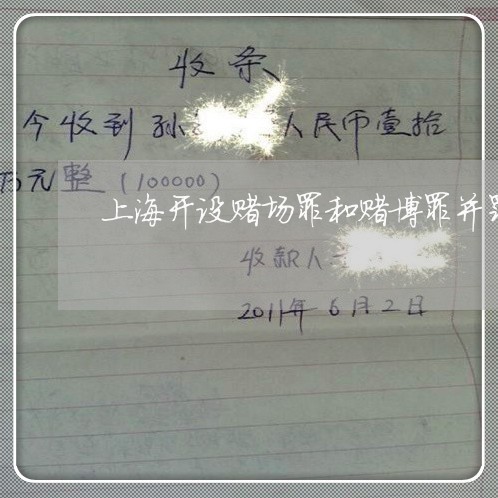 收条
今收到孙 人民币壹拾
万元整(100000)
上海开设赌场罪和赌博罪并
收款人
2011年6月2日